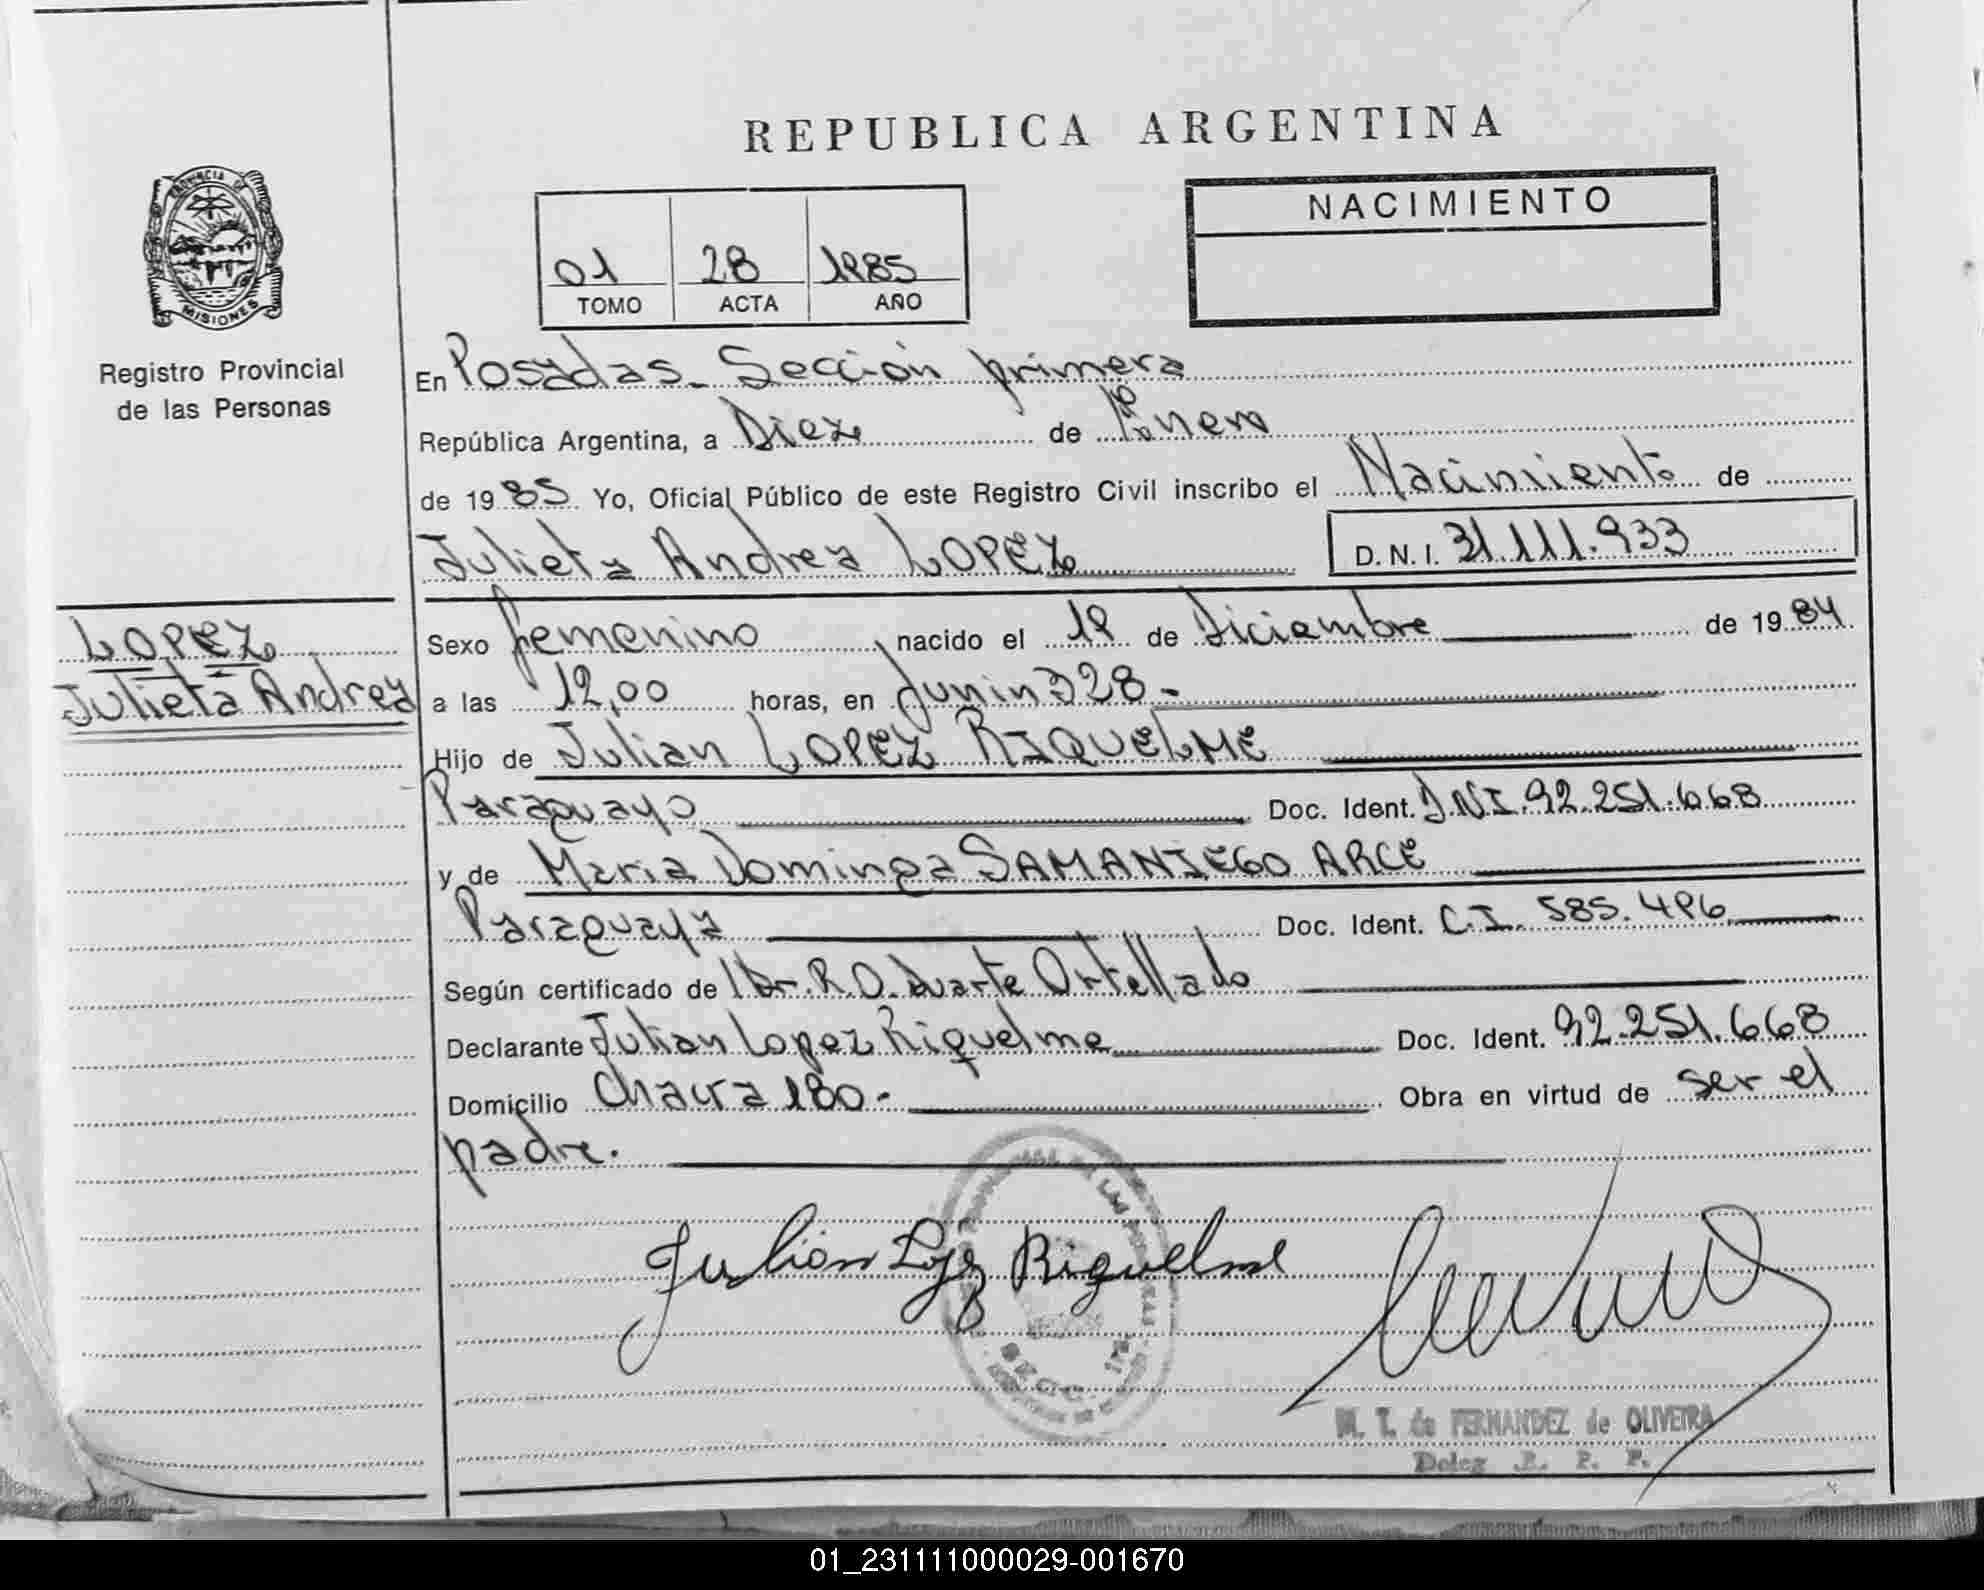 REPUBLICA ARGENTINA
PROVINCIA DE
MISIONES
Registro Provincial
de las Personas
01 28 1985
TOMO ACTA AÑO
NACIMIENTO
En Posadas - Sección primera
República Argentina, a Diez de Enero
de 1985 Yo, Oficial Público de este Registro Civil inscribo el Nacimiento de
Julieta Andrea LOPEZ D.N.I. 31.111.933
LOPEZ
Julieta Andrea
Sexo femenino nacido el 19 de Diciembre de 1984
a las 12,00 horas, en Junin 328.-
Hijo de Julian LOPEZ RIQUELME
Paraguayo Doc. Ident. D.N.I. 92.251.668
y de Maria Dominga SAMANIEGO ARCE
Paraguaya Doc. Ident. C.I. 585.496
Según certificado de Dr. R.O. Duarte Ortellado
Declarante Julian Lopez Riquelme Doc. Ident. 92.251.668
Domicilio Chacra 180.- Obra en virtud de ser el
padre.
Julian Lopez Riquelme
M. T. de FERNANDEZ de OLIVEIRA
Deleg R. P. P.
01_231111000029-001670